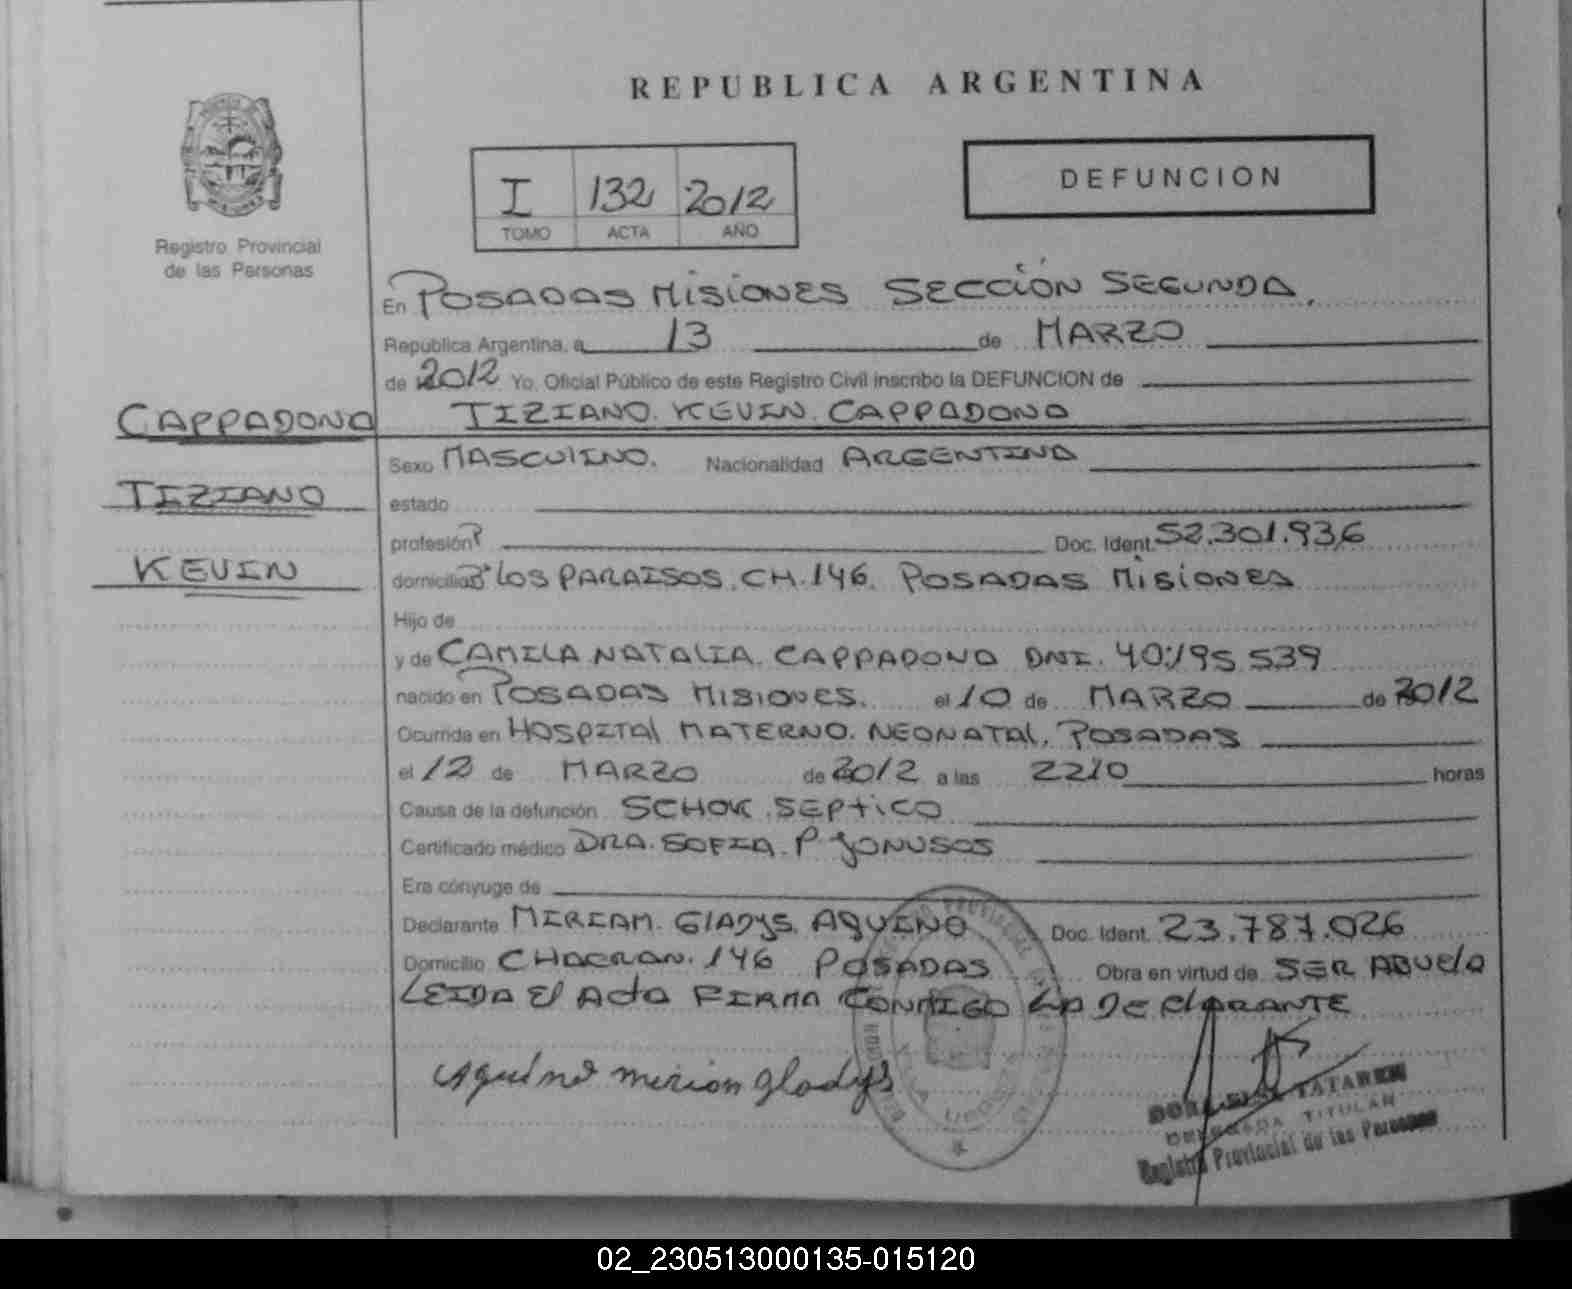 REPUBLICA ARGENTINA
I 132 2012
TOMO ACTA AÑO
DEFUNCION
Registro Provincial
de las Personas
En POSADAS MISIONES SECCIÓN SEGUNDA.
Republica Argentina, a 13 de MARZO
de 2012 Yo, Oficial Público de este Registro Civil inscribo la DEFUNCION de
CAPPADONA TIZIANO. KEVIN. CAPPADONA
Sexo MASCULINO. Nacionalidad ARGENTINA
TIZIANO
estado
profesión Doc. Ident. 52.301.936
KEVIN
domicilio Bº LOS PARAISOS. CH. 146. POSADAS MISIONES
Hijo de
y de CAMILA NATALIA. CAPPADONA DNI. 40.195.539
nacido en POSADAS MISIONES. el 10 de MARZO de 2012
Ocurrida en HOSPITAL MATERNO. NEONATAL. POSADAS
el 12 de MARZO de 2012 a las 2210 horas
Causa de la defunción SCHOK. SEPTICO
Certificado médico DRA. SOFIA. P. JONUSAS
Era cónyuge de
Declarante MIRIAM. GLADYS. AQUINO Doc. Ident. 23.787.026
Domicilio CHACRAN. 146 POSADAS Obra en virtud de SER ABUELA
LEIDA El ActA FIRMA CONMIGO LA DEClARANTE
Aquino Mirion Gladys
TATAREN
DELEGADA TITULAR
Registro Provincial de las Personas
02_230513000135-015120